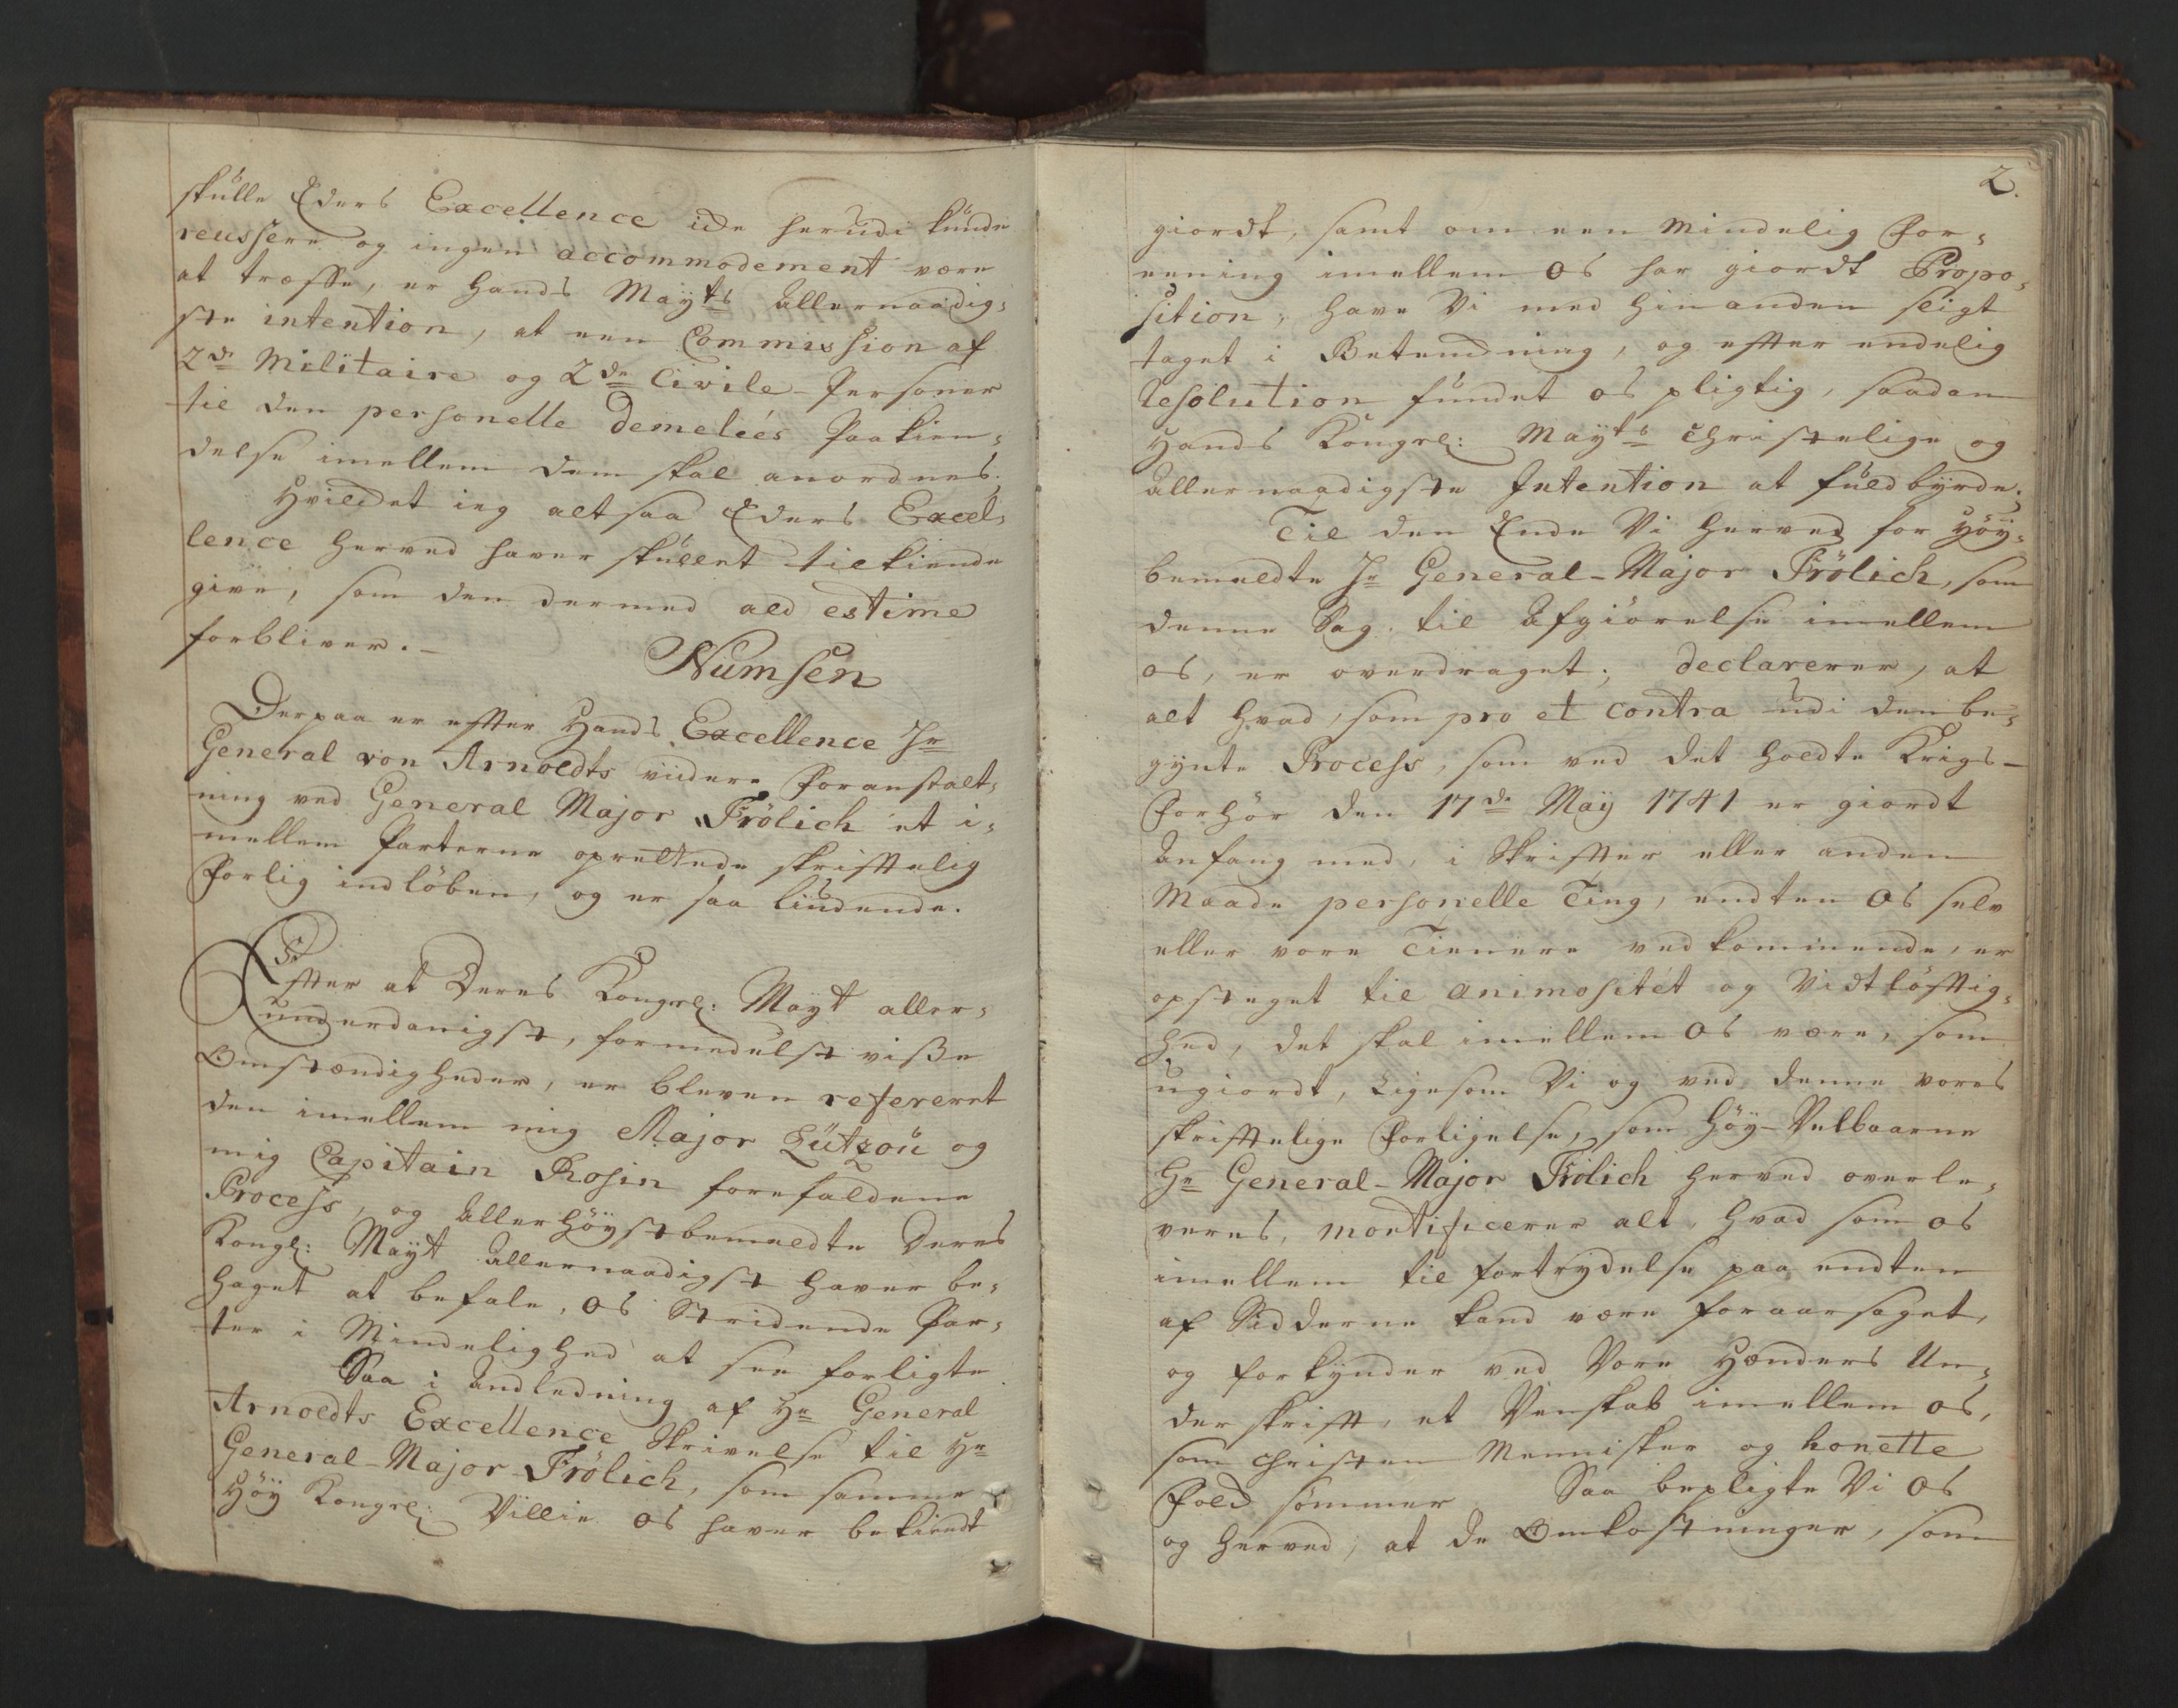 skulle Eders Excellence icke herudi kunde
reussere og ingen accommodement være
at træffe, er Hands Mayts Allernaadig-
ste intention, at een Commission af
2de Militaire og 2de Civile Personer
til den personelle Demelées Paakien-
delse imellem dem skal anordnes.
Hvilcket ieg altsaa Eders Excel-
lence herved haver skullet tilkiende
give, som den der med ald estime
forbliver.
Numsen
Derpaa er efter Hands Excellence Hr
General von Arnoldts viidere Foranstalt-
ning ved General Major Frölich et i-
mellem Parterne oprettede skrifftelig
Forlig indløben, og er saa liudende.
Effter at Deres Kongel: Mayt aller-
underdanigst, formedelst visse
Omstændigheder, er bleven refereret
den imellem mig Major Lützou og
mig Capitain Rosin forefaldene
Process, og Allerhöystbemeldte Deres
Kongl: Mayt Allernaadigst haver be-
haget at befale, os Stridende Par-
ter i Mindelighed at see forligte.
Saa i Andledning af Hr General
Arnoldts Excellence Skrivelse til Hr
General-Major Frölich, som samme
Höy Kongel: Villie os haver bekiendt
2.
giordt, samt om een Mindelig For-
eening imellem os har giordt Propo-
sition, have Vi med hinanden sligt
taget i Betenckning, og efter endelig
Resolution fundet os pligtig, saadan
Hands Kongel: Mayts Christelige og
Allernaadigste Intention at fuldbyrde.
Til den Ende Vi herved for Höy-
bemeldte Hr General-Major Frölich, som
denne Sag til Afgiörelse imellem
os, er overdraget, declarerer, at
alt hvad, som pro et contra udi den be-
gynte Process, som ved det holdte Krigs-
Forhör den 17de Maÿ 1741 er giordt
Anfang med, i Skriffter eller anden
Maade personelle Ting, endten os selv
eller vore Tienere vedkommende, er
opsteget til animositét og Vidtløfftig-
hed, det skal imellem os være, som
ugiordt, Ligesom Vi og ved denne vores
skrifftelige Forligelse, som Höy-Velbaarne
Hr General-Major Frölich herved overle-
veres, mortificerer alt, hvad som os
imellem til fortrydelse paa endten
af Sidderne kand være foraarsaget,
og forkynder ved Vore Hænders Un-
derskrifft, et Venskab imellem os,
som Christen Mennisker og honette
Folck sömmer Saa bepligte Vi os
og herved, at de Omkostninger, som